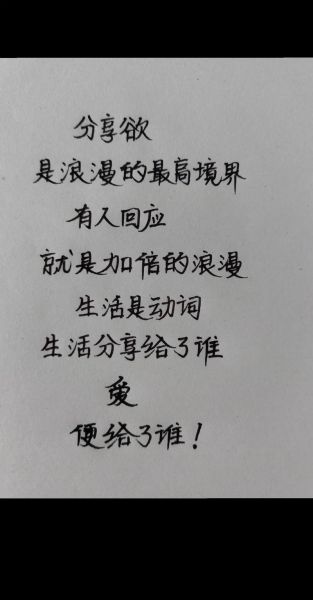 分享欲
是浪漫的最高境界
有人回应
就是加倍的浪漫
生活是动词
生活分享给了谁
爱
便给了谁！